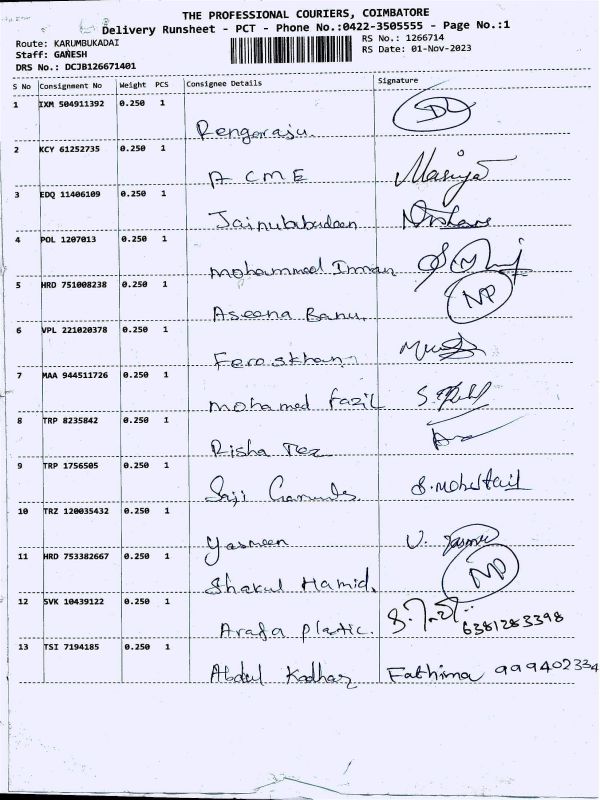 THE PROFESSIONAL COURIERS, COIMBATORE
Delivery Runsheet - PCT - Phone No.:0422-3505555 - Page No.:1
Route: KARUMBUKADAI
RS No.: 1266714
Staff: GANESH
RS Date: 01-Nov-2023
DRS No.: DCJB126671401
S No Consignment No Weight PCS Consignee Details Signature
1 IXM 504911392 0.250 1
Rengaraju.
2 KCY 61252735 0.250 1
A CME
3 EDQ 11406109 0.250 1
Jainulabudeen
4 POL 1207013 0.250 1
Mohammed Imran
5 HRD 751008238 0.250 1 NP
Aseena Banu.
6 VPL 221020378 0.250 1
Feroskhan
7 MAA 944511726 0.250 1
Mohamed fazil
8 TRP 8235842 0.250 1
Risha Tex
9 TRP 1756505 0.250 1
10 TRZ 120035432 0.250 1
Yasmeen
11 HRD 753382667 0.250 1 NP
Shakul Hamid.
12 SVK 10439122 0.250 1
Arafa plastic. 6381283398
13 TSI 7194185 0.250 1
Abdul Kadhar Fathima 999402334